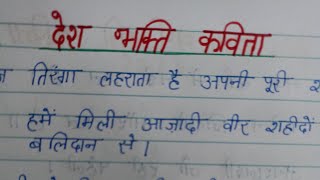 देश भक्ति कविता
तिरंगा लहराता है अपनी पूरी
हमें मिली आज़ादी वीर शहीदों
बलिदान से।